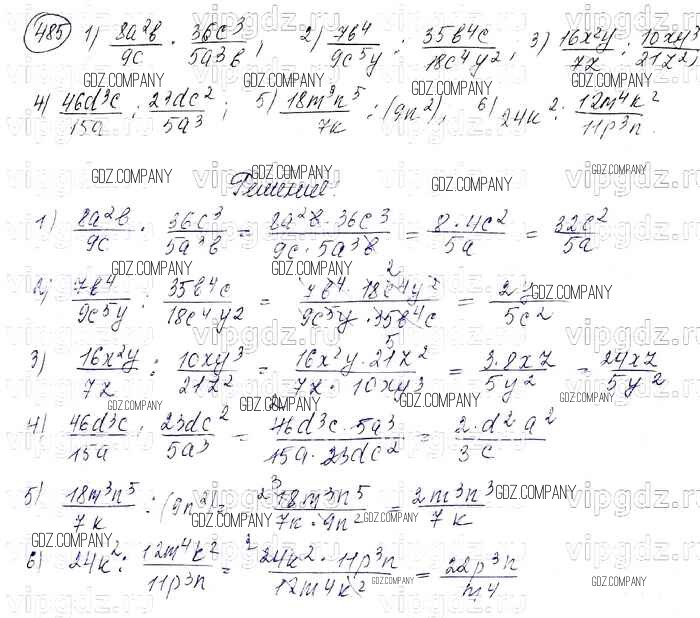 485 1) 8a²b/9c · 36c³/5a³b; 2) 7b⁴/9c⁵y : 35b⁴c/18c⁴y²; 3) 16x²y/7z : 10xy³/21z²;
4) 46d³c/15a : 23dc²/5a³; 5) 18m³n⁵/7k : (9n²), 6) 24k² : 12m⁴k²/11p³n.
Решение:
1) 8a²b/9c · 36c³/5a³b = 8a²b·36c³/9c·5a³b = 8·4c²/5a = 32c²/5a
2) 7b⁴/9c⁵y : 35b⁴c/18c⁴y² = 7b⁴·18c⁴y²/9c⁵y·35b⁴c = 2y/5c²
3) 16x²y/7z : 10xy³/21z² = 16x²y·21z²/7z·10xy³ = 3·8xz/5y² = 24xz/5y²
4) 46d³c/15a : 23dc²/5a³ = 46d³c·5a³/15a·23dc² = 2·d²a²/3c
5) 18m³n⁵/7k : (9n²) = 18m³n⁵/7k·9n² = 2m³n³/7k
6) 24k² : 12m⁴k²/11p³n = 24k²·11p³n/12m⁴k² = 22p³n/m⁴
GDZ.COMPANY
vipgdz.ru